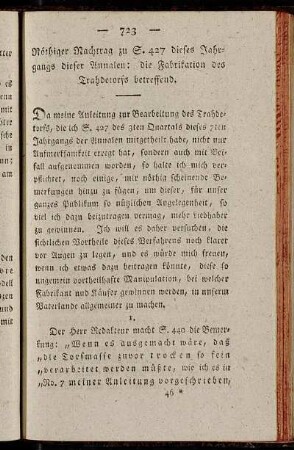 — 723 —
Nöthiger Nachtrag zu S. 427 dieses Jahr-
gangs dieser Annalen: die Fabrikation des
Trahdetorfs betreffend.
Da meine Anleitung zur Bearbeitung des Trahde-
torfs, die ich S. 427 des 3ten Quartals dieses 7ten
Jahrgangs der Annalen mitgetheilt habe, nicht nur
Aufmerksamkeit erregt hat, sondern auch mit Bei-
fall aufgenommen worden, so halte ich mich ver-
pflichtet, noch einige, mir nöthig scheinende Be-
merkungen hinzu zu fügen, um dieser, für unser
ganzes Publikum so nützlichen Angelegenheit, so
viel ich dazu beizutragen vermag, mehr Liebhaber
zu gewinnen. Ich will es daher versuchen, die
sichtlichen Vortheile dieses Verfahrens noch klarer
vor Augen zu legen, und es würde mich freuen,
wenn ich etwas dazu beitragen könnte, diese so
ungemein vortheilhafte Manipulation, bei welcher
Fabrikant und Käufer gewinnen werden, in unserm
Vaterlande allgemeiner zu machen.
1.
Der Herr Redakteur macht S. 440 die Bemer-
kung: „Wenn es ausgemacht wäre, daß
„die Torfmasse zuvor trocken so fein
„verarbeitet werden müßte, wie ich es in
„No. 7 meiner Anleitung vorgeschrieben,
46 *